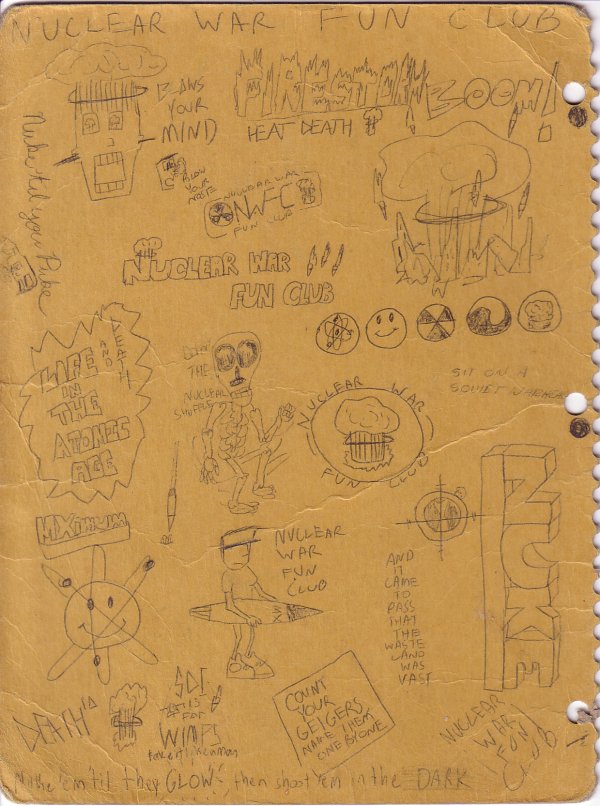 NUCLEAR WAR FUN CLUB
BLOWS
YOUR
MIND
FIRESTORM
HEAT DEATH
BOOM!
Nuke til you Puke
BLOW
YOUR
NOSE
NUCLEAR WAR
NWFC
FUN CLUB
NUCLEAR WAR
FUN CLUB
LIFE
AND
DEATH
IN
THE
ATOMIC
AGE
DOIN'
THE
NUCLEAR
SHUFFLE
NUCLEAR WAR
FUN CLUB
SIT ON A
SOVIET WARHEAD
NUKE
MXIMUM
NUCLEAR
WAR
FUN
CLUB
AND
IT
CAME
TO
PASS
THAT
THE
WASTE
LAND
WAS
VAST
DEATH
SDI
IS FOR
WIMPS
COUNT
YOUR
GEIGERS
NAME THEM
ONE BY ONE
NUCLEAR
WAR
FUN
Club
Nuke 'em 'til they GLOW, then shoot 'em in the DARK